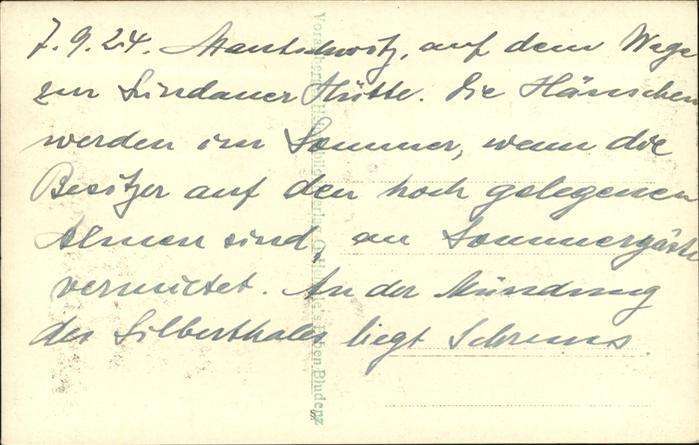 7.9.24. auf dem Wege
zur Lindauer Hütte. Die Häuschen
werden im Sommer, wenn die
Besitzer auf den hoch gelegenen
Almen sind, an Sommergäste
vermietet. An der Mündung
des Silberthales liegt Schruns
Bludenz